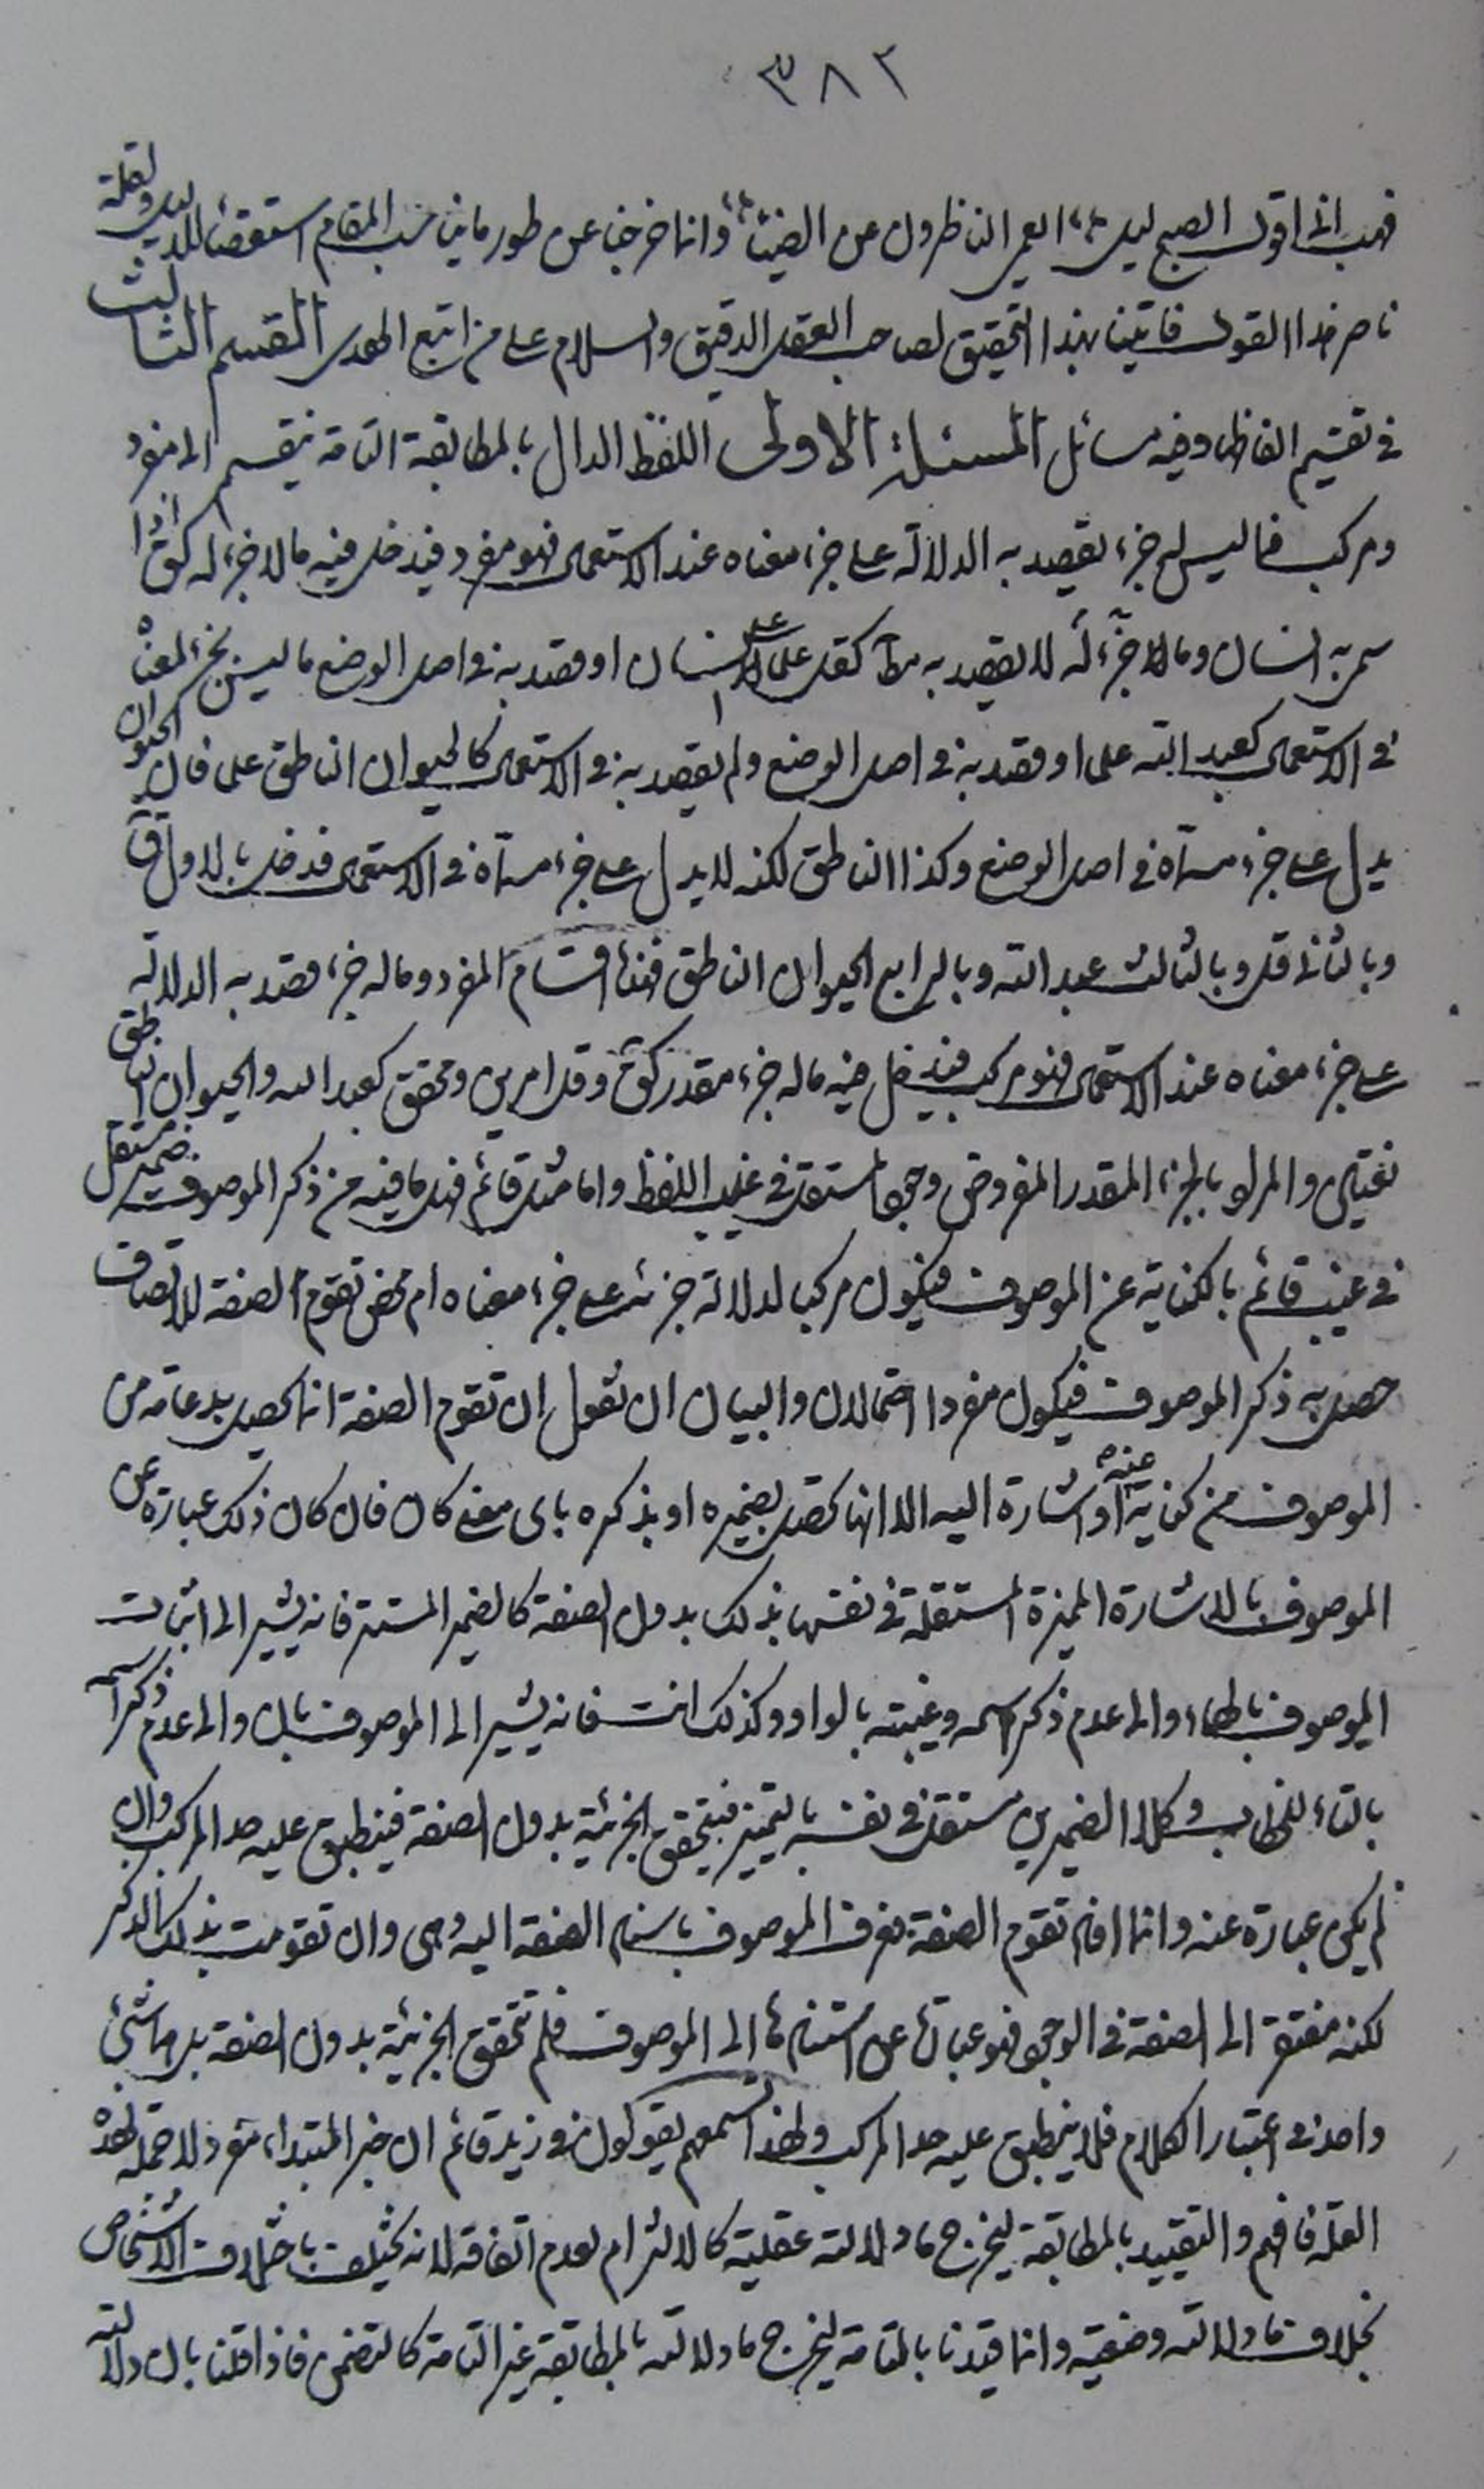 ٣٨٢
فهب انى اقول الصبح ليل ،، ايعمى الناظرون عن الضياء ،، وانما خرجنا عن طور ما يناسب المقام استقصاء للدليل ولقلة
ناصر هذا القول فاتينا بهذا التحقيق لصاحب العقل الدقيق والسلام على من اتبع الهدى القسم الثالث
فى تقسيم الفاظها وفيه مسائل المسئلة الاولى اللفظ الدال بالمطابقة التامة ينقسم الى مفرد
ومركب فما ليس له جزء يقصد به الدلالة على جزء معناه عند الاستعمال فهو مفرد فيدخل فيه ما لا جزء له كق اذا
سمى به انسان وما لا جزء له لا يقصد به كقل على الانسان او قصد به فى اصل الوضع ما ليس بجزء لمعناه
فى الاستعمال كعبد الله علما او قصد به فى اصل الوضع ولم يقصد به فى الاستعمال كالحيوان الناطق علما فان الحيوان
يدل على جزء مسماه فى اصل الوضع وكذا الناطق لكنه لا يدل على جزء مسماه فى الاستعمال فدخل بالاول ق
وبالثانى قل وبالثالث عبد الله وبالرابع الحيوان الناطق فهذه اقسام المفرد وما له جزء قصد به الدلالة
على جزء معناه عند الاستعمال فهو مركب فيدخل فيه ما له جزء مقدر كق وقل امرين ومحقق كعبد الله والحيوان الناطق
نعتين والمراد بالجزء المقدر المفروض وجوده مستقل فى غيب اللفظ واما مثل قائم فهل ما فيه من ذكر الموصوف ضمير مستقل
فى غيب قائم بالكناية عن الموصوف فيكون مركبا لدلالة جزئه على جزء معناه ام محض تقوم الصفة للاتصاف
حصل به ذكر الموصوف فيكون مفردا احتمالان والبيان ان نقول ان تقوم الصفة انما يحصل بدعامة من
الموصوف من كناية عنه او اشارة اليه الا انها تحصل بضميره او بذكره باى معنى كان فان كان ذلك عبارة عن
الموصوف بالاشارة المميزة المستقلة فى نفسها بذلك بدون الصفة كالضمير المستتر فانه يشير الى اثبات
الموصوف بالهاء والى عدم ذكر اسمه وغيبته بالواو وكذلك انت فانه يشير الى الموصوف بان والى عدم ذكر اسمه
بالتاء للخطاب وكلا الضميرين مستقل فى نفسه بالتمييز فيتحقق الجزئية بدون الصفة فينطبق عليه حد المركب وان
لم يكن عبارة عنه وانما افاد تقوم الصفة بعرف الموصوف باسناد الصفة اليه وهى وان تقومت بذلك الذكر
لكنه مفتقر الى الصفة فى الوجود فهو عبارة عن استنادها الى الموصوف فلم تتحقق الجزئية بدون الصفة بل هما شىء
واحد فى اعتبار الكلام فلا ينطبق عليه حد المركب ولهذا تسمعهم يقولون فى زيد قائم ان خبر المبتداء مفرد لا جملة لهذه
العلة فافهم والتقييد بالمطابقة ليخرج ما دلالته عقلية كالالتزام لعدم اتفاقه لانه يختلف باختلاف الاشخاص
بخلاف ما دلالته وضعية وانما قيدنا بالتامة ليخرج ما دلالته بالمطابقة غير التامة كالتضمن فاذا قلنا بان دلالته